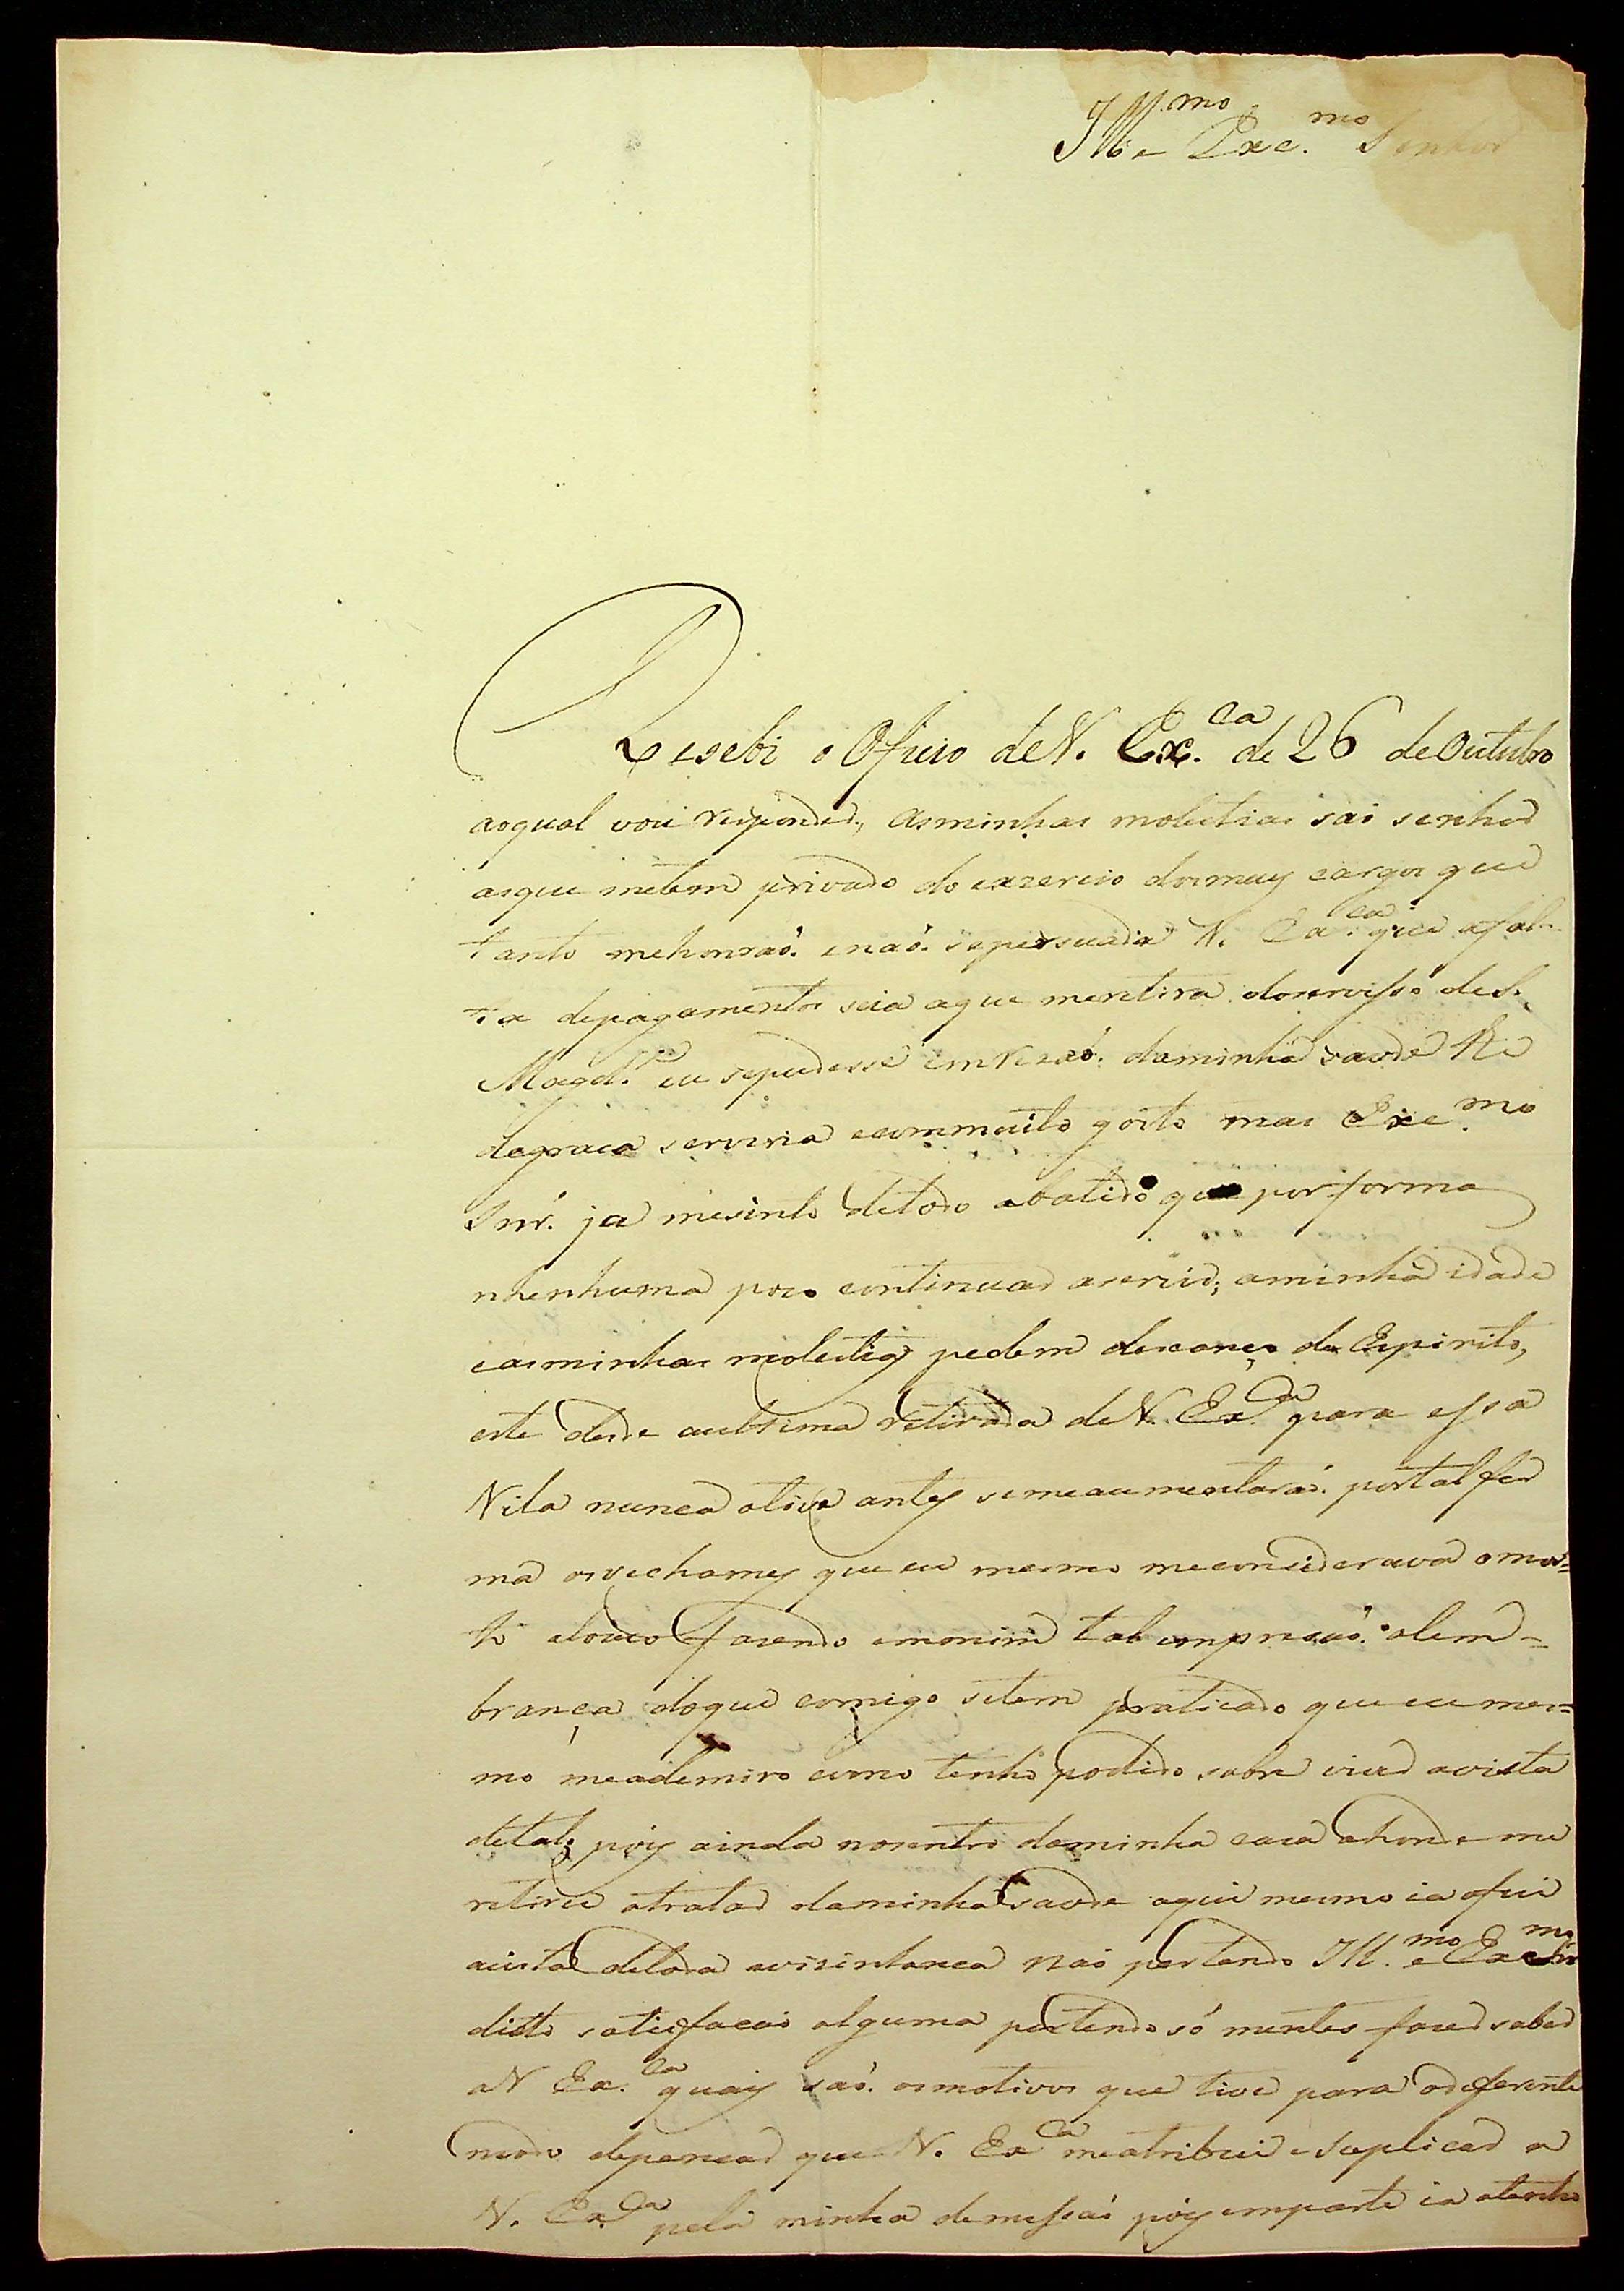 Ill.mo e Exc.mo Senhor
Resebi o Oficio de V. Ex.ca de 26 de Outubro
aoqual vou responder, asminhas molestias saõ senhor
asque metem privado do exzercio dosmeus cargos que
tanto mehonraõ. enaõ. sepersuadia V. Ex.ca que afal-
ta depagamentos seia aque meretira doservisso de S.
Magd.e eu sepudesse emrezaõ. daminha saude the
degraca serviria ecommuito gosto mas Exc.mo
Snr. ja mesinto detodo abatido que por forma
nhenhuma poso continuar aservir, aminha idade
easminhas molestias pedem descanço de Espirito,
este desde aultima retirada de V. Ex.ca para essa
Vila nunca otive antes semeaumentaraõ. portal for
ma osvechames que eu mesmo meconsiderava omor=
to elouco fazendo emmim tal empresaõ. alem=
brança doque comigo setem praticado que eu mes=
mo meademiro como tenho podido sobre viver avista
detal, pois ainda nosentro daminha casa ahonde me
retirei atratar daminha saude aqui mesmo ia ofui
avista detoda avisinhanca naõ pertendo Ill.mo e Ex.mo Snr
disto satisfacaõ alguma pertendo só mentes fazer saber
aV Ex.ca quais saõ. osmotivos que tive para odeferente
modo depencar que V. Ex.ca meatribui esuplicar a
V. Ex.ca pela minha demissaõ pois emparte ia atenho